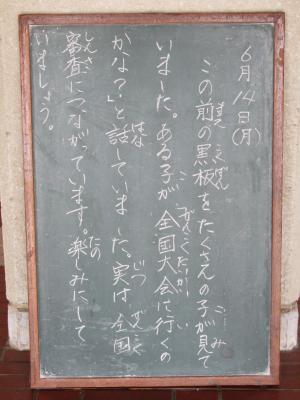 6月14日(月)
この前の黒板をたくさんの子が見て
いました。ある子が全国大会に行くの
かな?」と話していました。実は、全国
審査につながっています。楽しみにして
いましょう。